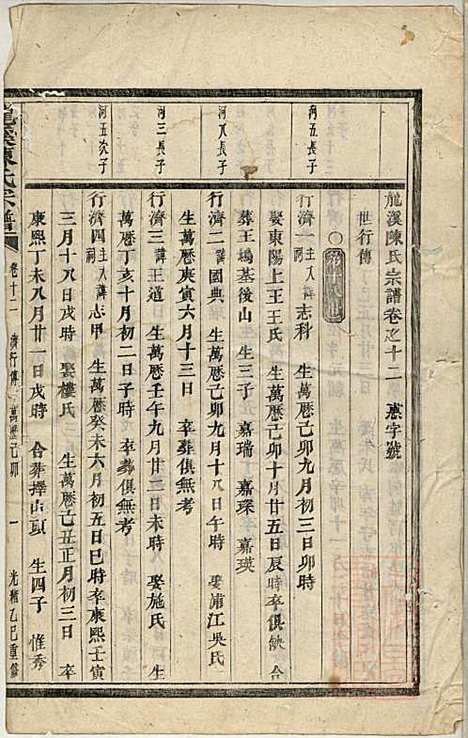 龍溪陳氏宗譜卷之十二 憲字號
世行傳
河五長子
行濟一 主入祠 諱志科 生萬歷己卯九月初三日卯時
娶東陽上王王氏 生萬歷己卯十月廿五日辰時卒俱缺 合
葬王塢基後山 生三子 嘉瑞 嘉琛 嘉瑛
河八長子
行濟二 諱國典 生萬歷己卯九月十八日午時 娶浦江吳氏
生萬歷庚寅六月十三日 卒葬俱無考
河三長子
行濟三 諱王道 生萬歷壬午九月廿三日未時 娶施氏
萬歷丁亥十月初二日子時 卒葬俱無考
河五次子
行濟四 主入祠 諱志甲 生萬歷癸未六月初五日巳時卒康熙壬寅
三月十八日戌時 娶樓氏 生萬歷己丑正月初三日 卒
康熙丁未八月廿一日戌時 合葬擇山頭 生四子 惟秀
龍溪陳氏宗譜 卷十二 濟行傳 萬歷己卯 一 光緒乙巳重修